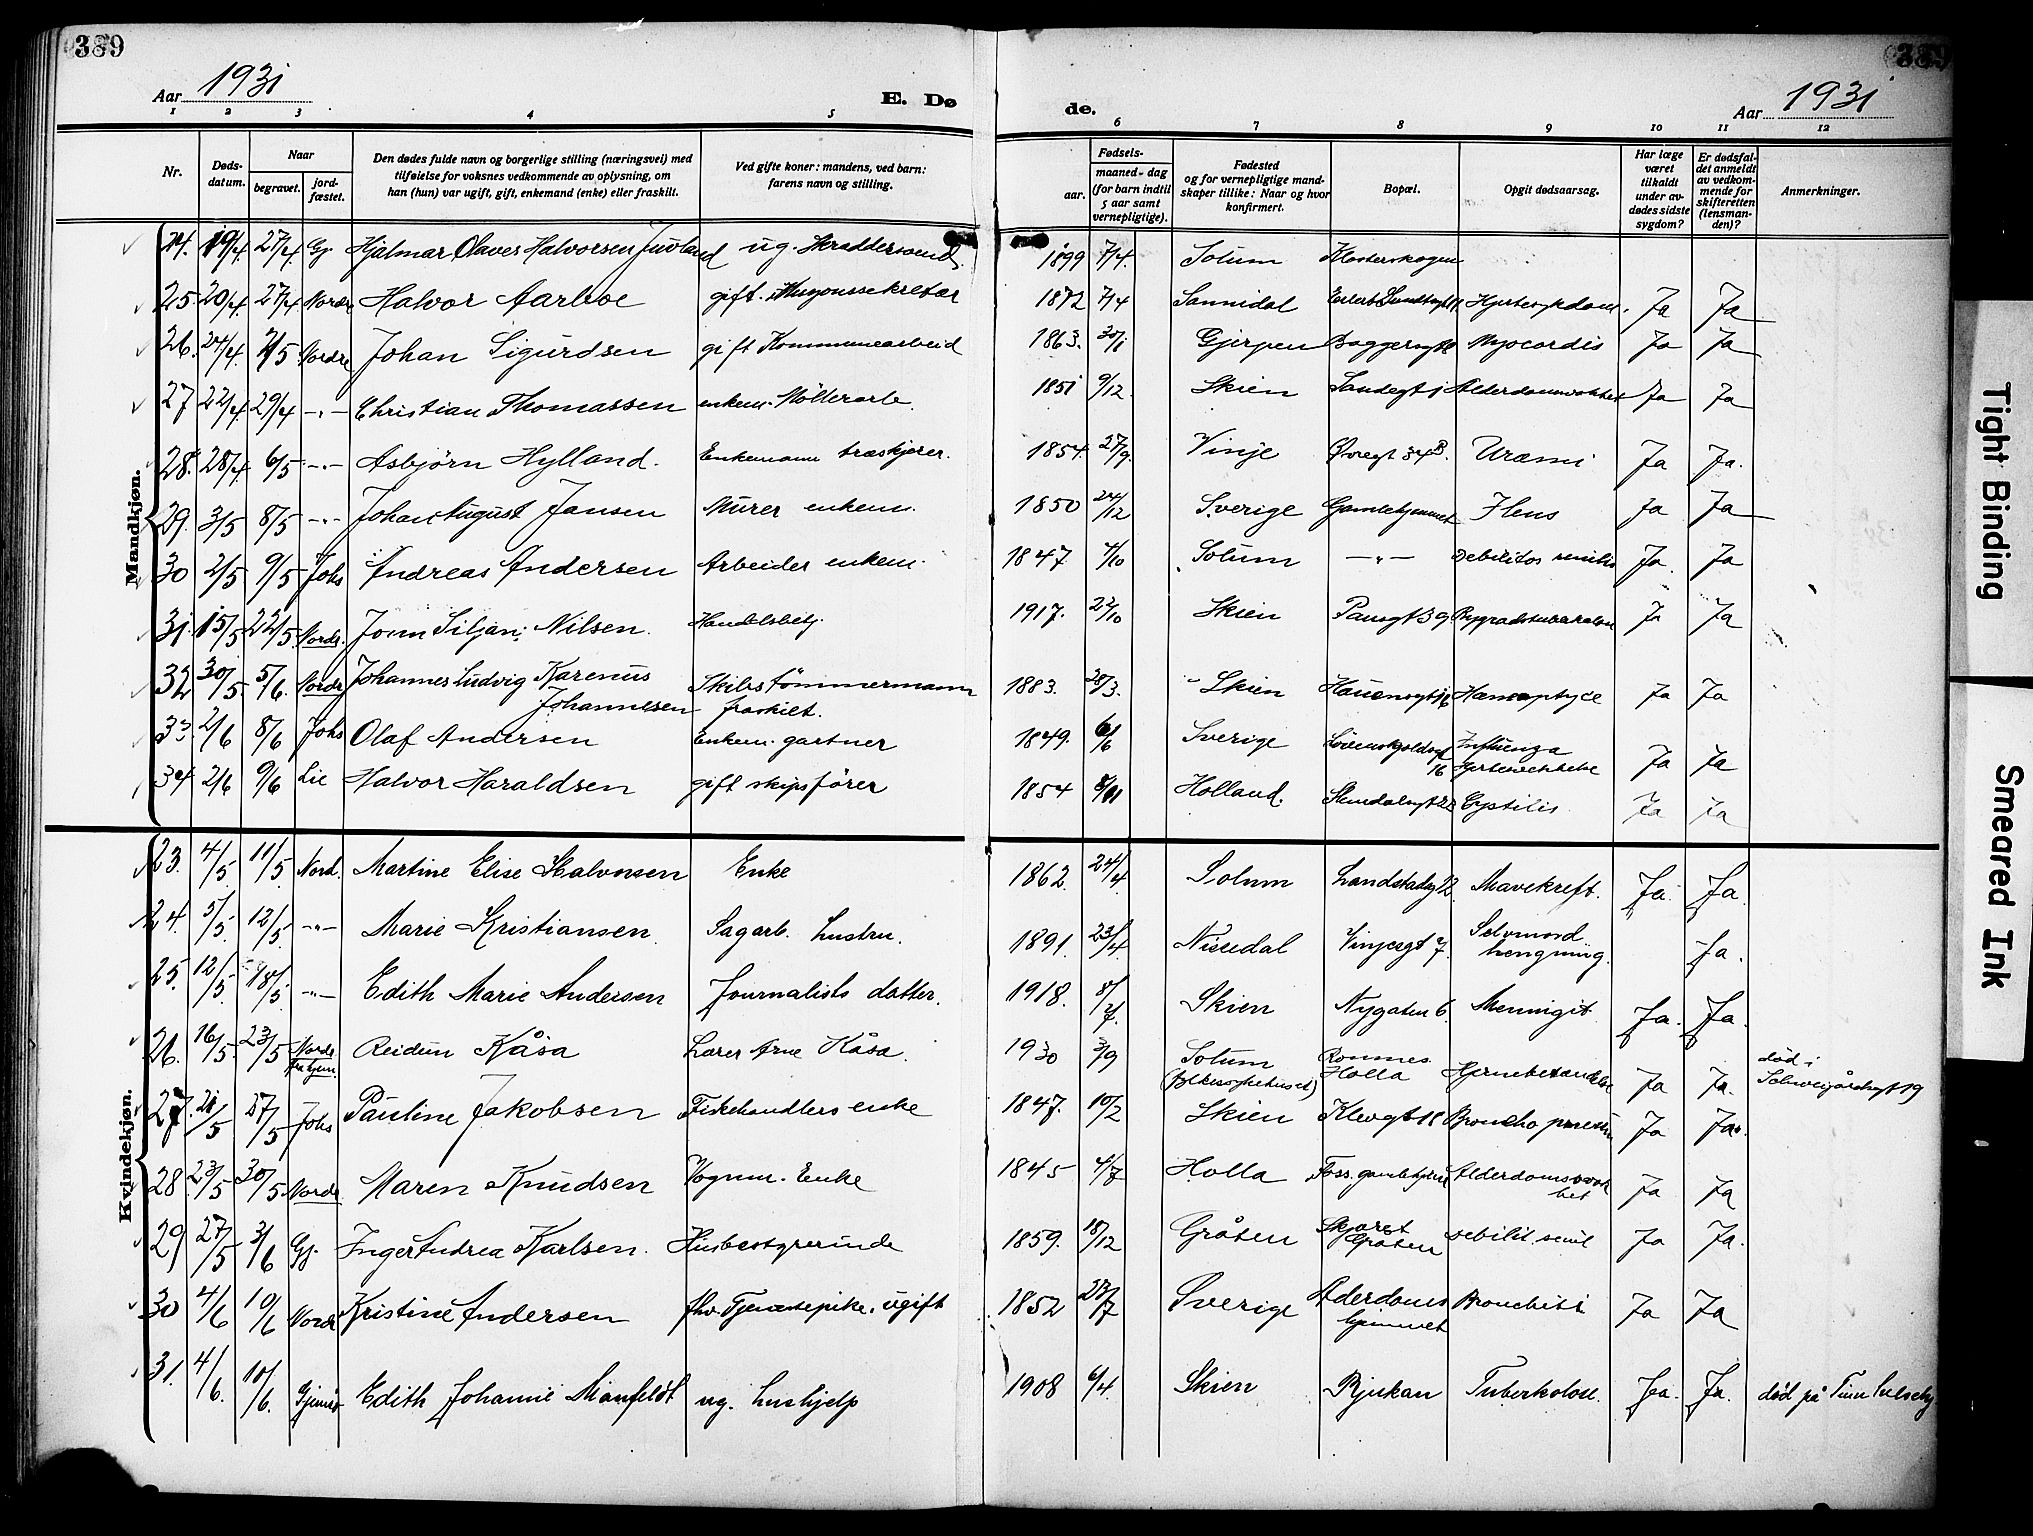 389
389
Aar 1931
E. Dø
de.
Aar 1931
1 2 3 4 5 6 7 8 9 10 11 12
Nr.
Døds-
datum.
Naar
begravet.
jord-
fæstet.
Den dødes fulde navn og borgerlige stilling (næringsvei) med
tilføielse for voksnes vedkommende av oplysning, om
han (hun) var ugift, gift, enkemand (enke) eller fraskilt.
Ved gifte koner: mandens, ved barn:
farens navn og stilling.
Fødsels-
aar.
maaned- dag
(for barn indtil
5 aar samt
vernepligtige).
Fødested
og for vernepligtige mand-
skaper tillike: Naar og hvor
konfirmert.
Bopæl.
Opgit dødsaarsag.
Har læge
været
tilkaldt
under av-
dødes sidste
sygdom?
Er dødsfal-
det anmeldt
av vedkom-
mende for
skifteretten
(lensman-
den)?
Anmerkninger.
Mandkjøn.
24. 19/4 27/4 Gj. Hjalmar Olaves Halvorsen Juvland ug. Skræddersvend 1899 7/4. Solum Klosterskogen
25. 20/4 27/4 Nordre Halvor Aarboe gift. 1872 7/4 Sannidal Hjertesykdom. Ja Ja
26. 24/4. 2/5 Nordre Johan Sigurdsen gift Kommunearbeid 1863. 30/1 Gjerpen Myocardis Ja Ja
27 22/4 29/4 -"- Christian Thomassen enkem. Möllerarb. 1851 9/12 Skien Alderdomsvakhet Ja Ja
28. 28/4. 6/5 -"- Asbjörn Hylland. Enkemann træskjærer. 1854. 27/9. Vinje Øvregt 34B. Uræmi Ja Ja.
29. 3/5 8/5 -"- Johan August Jansen Murer enkem. 1850 24/12 Sverige Gamlehjemmet Ilens Ja Ja
30 2/5 9/5 Johs Andreas Andersen Arbeider enkem. 1847. 4/10 Solum -"- Debilitas senilis Ja. Ja
31. 15/5 22/5 Nordr. Siljan Nilsen. Handelsbetj. 1917. 22/10 Skien Ja Ja
32 30/5 5/6. Nordr Johannes Ludvig Karenus
Johannesen Skibstömmermann
fraskilt. 1883. 28/3. Skien Hæmoptyse Ja Ja
33. 2/6 8/6 Johs Olaf Andersen Enkem. gartner 1849. 6/6 Sverige Løvenskjoldsgt
16 Influenza
Ja Ja
34 2/6 9/6 Lie Halvor Haraldsen gift skipsfører 1854 8/11 Holland. Cystilis Ja Ja
Kvindekjøn.
23. 4/5 11/5 Nord. Martine Elise Halvorsen Enke 1862. 24/4 Solum Landstadsg 12. Mavekreft. Ja. Ja.
24. 5/5. 12/5. -"- Marie Kristiansen. Sagarb. hustru. 1891. 23/4 Nissedal Vinjesgt 7. Selvmord
hengning. Ja.
25. 12/5. 18/5 -"- Edith Marie Andersen Journalists datter. 1918. 8/7. Skien Nygaten 6. Meningit Ja. Ja.
26. 16/5. 23/5 Nordr
fra hjem. Reidun Kåsa Lærer Arne Kåsa. 1930 3/9 Solum
(fylkessykehuset) Romnes
Holla Hjernebetændelse Ja Ja. død i
Schweigårdsgt 19
27. 21/5 27/5 Johs Pauline Jakobsen Fiskehandlers enke 1847. 10/2 Skien Klevgt 18 Ja Ja.
28. 23/5 30/5 Nordr Maren Knudsen Vognm. Enke 1845 4/7 Holla Foss. gamlehjem Alderdomssvak
het Ja Ja
29 27/5 3/6 Gj. Inger Andrea Karlsen. Husbestyrerinde 1859. 18/12 Gråten Skjæret
Gråten debilit. senil Ja Ja.
30 4/6 10/6 Nordr Kristine Andersen fhv. Tjenestepike. ugift 1852 27/7 Sverige Alderdoms
hjemmet Bronchiti Ja Ja
31. 4/6. 10/6. Gjemsø Edith Johanne Manfeldt ug. hushjelp 1908 6/4. Skien Rjukan Tuberkolose Ja. Ja. død på Tinn
Tight Binding
Smeared Ink